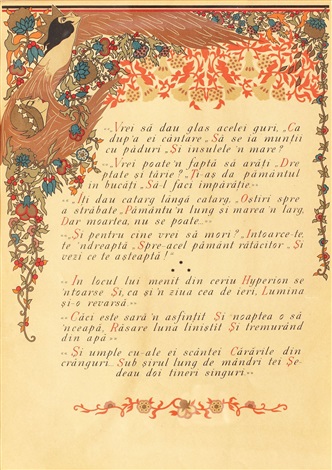 „Vrei să dau glas acelei guri, „Ca
dup'a ei cântare „Să se ia munții
cu păduri „Și insulele 'n mare?
„Vrei poate 'n faptă să arăți „Dre
ptate și tărie? „Ți-aș da pământul
în bucăți „Să-l faci împărăție
„Îți dau catarg lângă catarg, „Oștiri spre
a străbate „Pământu 'n lung și marea 'n larg,
Dar moartea nu se poate..
„Și pentru cine vrei să mori? „Întoarce-te,
te 'ndreaptă „Spre-acel pământ rătăcitor „Și
vezi ce te așteaptă!"
În locul lui menit din ceriu Hyperion se
'ntoarse Și, ca și 'n ziua cea de ieri, Lumina
și-o revarsă.
Căci este sară 'n asfințit Și noaptea o să
'nceapă, Răsare luna liniștit Și tremurând
din apă
Și umple cu-ale ei scântei Cărările din
crânguri. Sub șirul lung de mândri tei Șe-
deau doi tineri singuri.